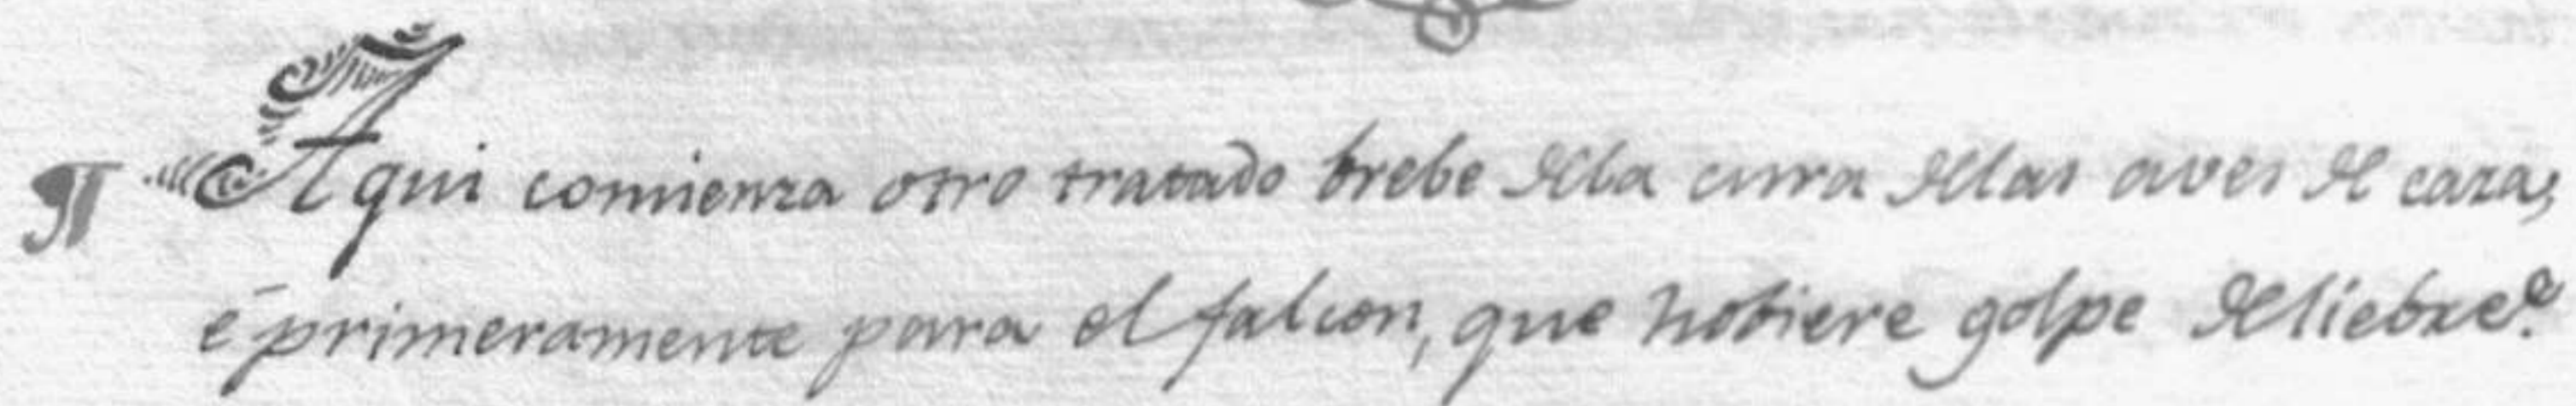 ¶ Aqui comienza otro tratado brebe della cura dellas aves de caza,
é primeramente para el falcon, que hobiere golpe de liebre.